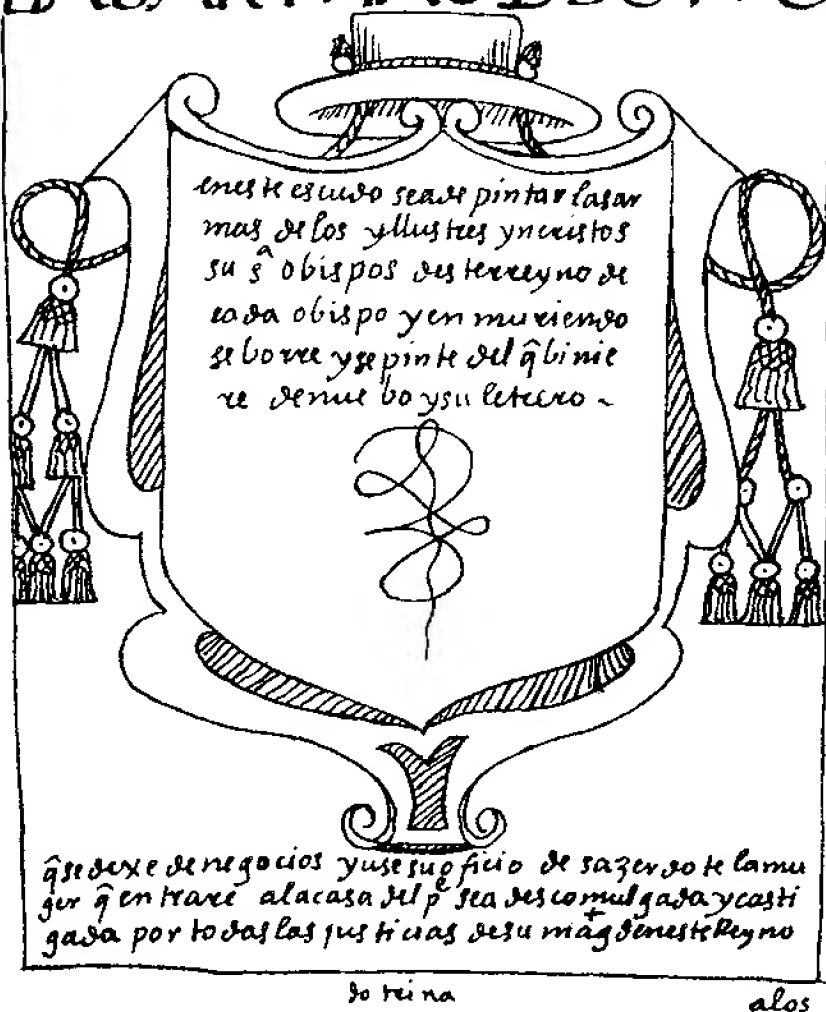 en este escudo sea de pintar las ar
mas de los yllustres yn cristos
su sᵃ obispos deste rreyno de
cada obispo y en muriendo
se borre y se pinte del q̃ binie
re de nuebo y su letrero ~
q̃ se dexe de negocios y use su oficio de sazerdote la mu
ger q̃ entrare a la casa del pᵉ sea descomulgada y casti
gada por todas las justicias de su mag en este Reyno
dotrina
a los